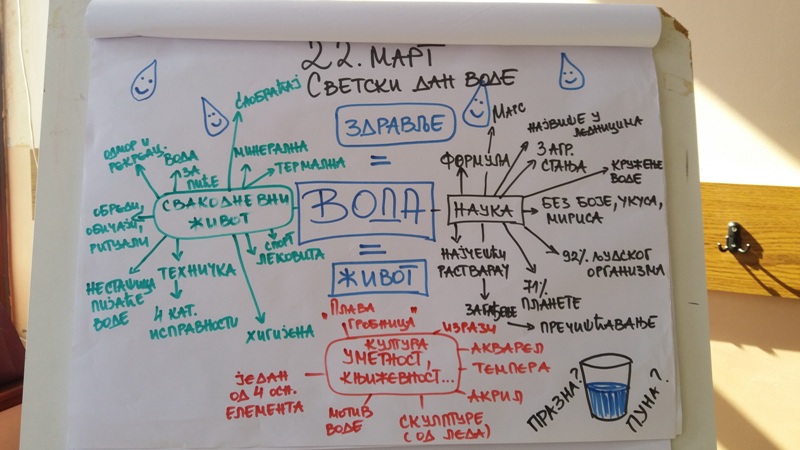 22. МАРТ
СВЕТСКИ ДАН ВОДЕ
ЗДРАВЉЕ
=
ВОДА
=
ЖИВОТ
СВАКОДНЕВНИ
ЖИВОТ
САОБРАЋАЈ
ОДМОР И
РЕКРЕАЦ.
ВОДА
ЗА
ПИЋЕ
МИНЕРАЛНА
ТЕРМАЛНА
ОБРЕДИ,
ОБИЧАЈИ,
РИТУАЛИ
НЕСТАШИЦА
ПИЈАЋЕ
ВОДЕ
ТЕХНИЧКА
4 КАТ.
ИСПРАВНОСТИ
ХИГИЈЕНА
СПОРТ
ЛЕКОВИТА
НАУКА
ФОРМУЛА
МАРС
НАЈВИШЕ У
ЛЕДНИЦИМА
3 АГР.
СТАЊА
КРУЖЕЊЕ
ВОДЕ
БЕЗ БОЈЕ, УКУСА,
МИРИСА
92% ЉУДСКОГ
ОРГАНИЗМА
71%
ПЛАНЕТЕ
НАЈЧЕШЋИ
РАСТВАРАЧ
ЗАГАЂЕЊЕ
ПРЕЧИШЋАВАЊЕ
КУЛТУРА
УМЕТНОСТ,
КЊИЖЕВНОСТ...
"ПЛАВА
ГРОБНИЦА"
ИЗРАЗИ
АКВАРЕЛ
ТЕМПЕРА
АКРИЛ
СКУЛПТУРЕ,
(ОД ЛЕДА)
МОТИВ
ВОДЕ
ЈЕДАН
ОД 4 ОСН.
ЕЛЕМЕНТА
ПРАЗНА?
ПУНА?